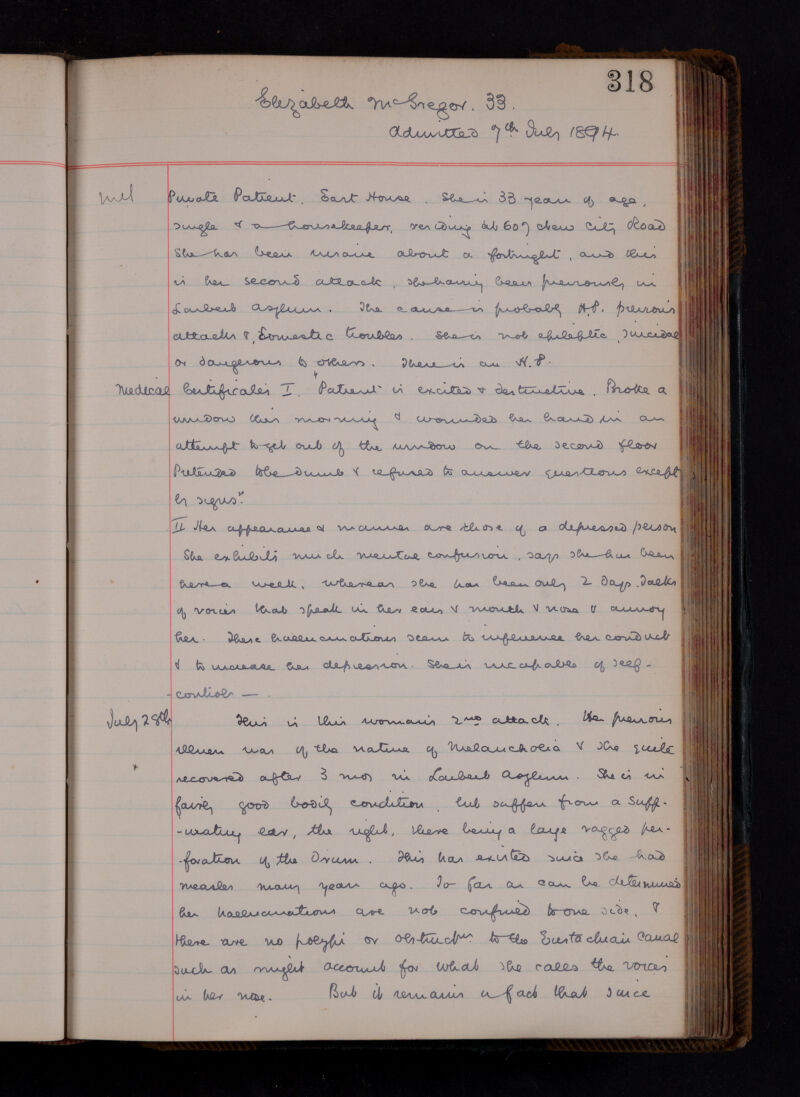 318
Elizabeth McGregor. 33.
Admitted 7th July 1894.
Private Patient, East House. She is 33 years of age,
single & a housekeeper, residing at 607 New City Road
She has been insane about a fortnight, and this
is her second attack, she having been previously in
Larbert Asylum. The cause is probably H.P. previous
attacks & Domestic troubles. She is not epileptic, suicidal
or dangerous to others. There is an H.P.
Medical Certificates I. "Patient is excited & destructive. Broke a
window this morning & wounded her hand in an
attempt to get out of the window on the second floor
Pretended to be dumb & refused to answer questions except
by signs".
II Her appearance & manner are those of a depressed person
She exhibits much mental confusion, says she has been
here a week, whereas she has been only 2 days. Talks
of voices that speak in her ears & mouth & nose & annoy
her. These hallucinations seem to influence her conduct
& to increase her depression. She is incapable of self-
-control —.
July 28th This is this woman's 2nd attack. Her previous
illness was of the nature of Melancholia & she quite
recovered after 3 mos in Larbert Asylum. She is in
fairly good bodily condition, but suffers from a supp-
-urating ear, the right, there being a large ragged per-
-foration of the Drum. This has existed since she had
measles many years ago. So far as can be determined
her hallucinations are not confined to one side, &
there are no polypi or obstructn to the Eustachian Canal
such as might account for what she calls the voices
in her nose. But it remains a fact that since